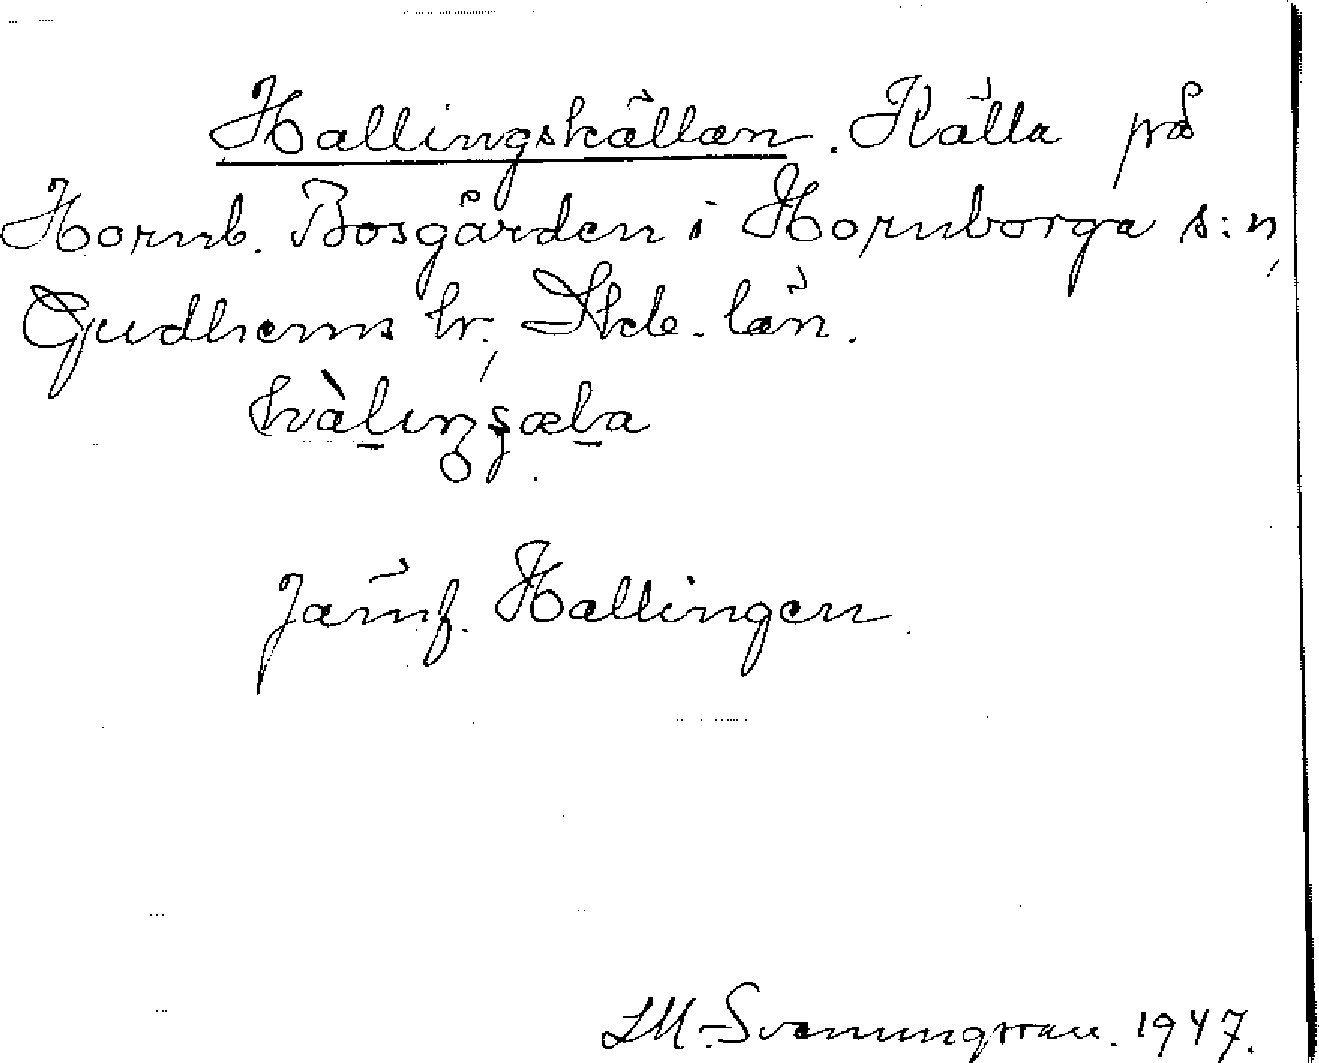 Hallingskällan. Källa på
Hornb. Bosgården i Hornborga s:n,
Gudhems hr, Skb. län.
Jämf. Hallingen.
1947.